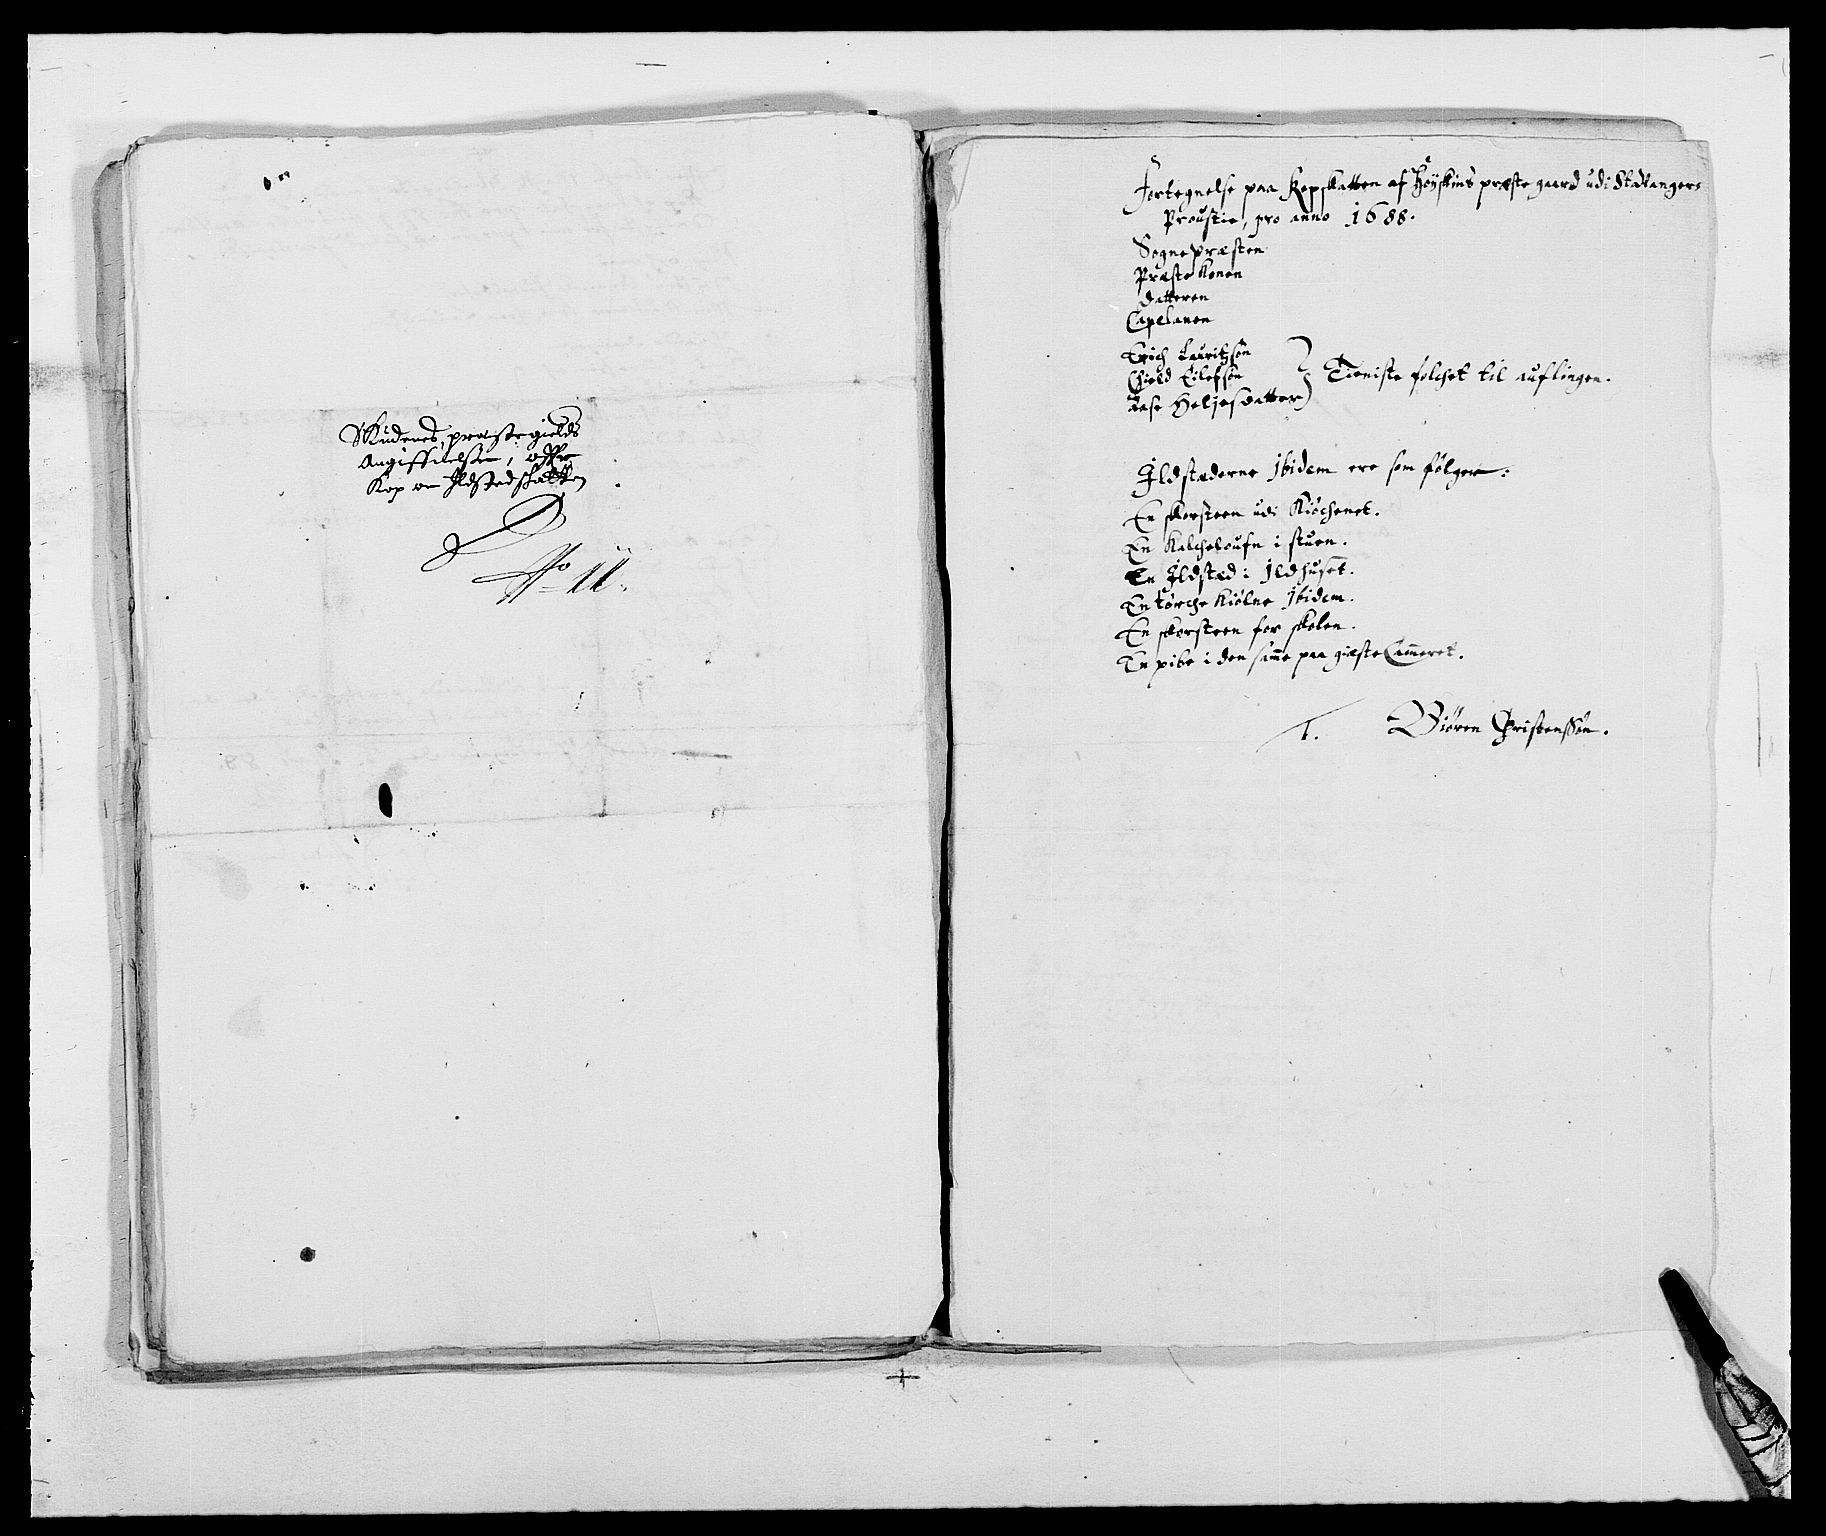 Skudenes præstegields
Angiffuelse, offr
Kop oc Ildstedskatten
No 11.
Fortegnelse paa Kopskatten af Høyskins præste gaard udi Stavanger
Proustie, pro anno 1688.
Sognepræsten
Præste Konen
Datteren
Capelanen
Erich Lauritzsøn
Eield Eilefsøn
Aase Heljesdatter } Tieniste folchet til auflingen.
Ildstæderne Ibidem ere som følger:
En skorsteen udi Kiøchenet.
En Kacheloufn i stuen.
En Ildstæd i Ildhuset.
En tørche Kiølne Ibidem.
En skorsteen for skolen.
En pibe i den samme paa gieste Cammeret.
T. Biøren Christenssøn.